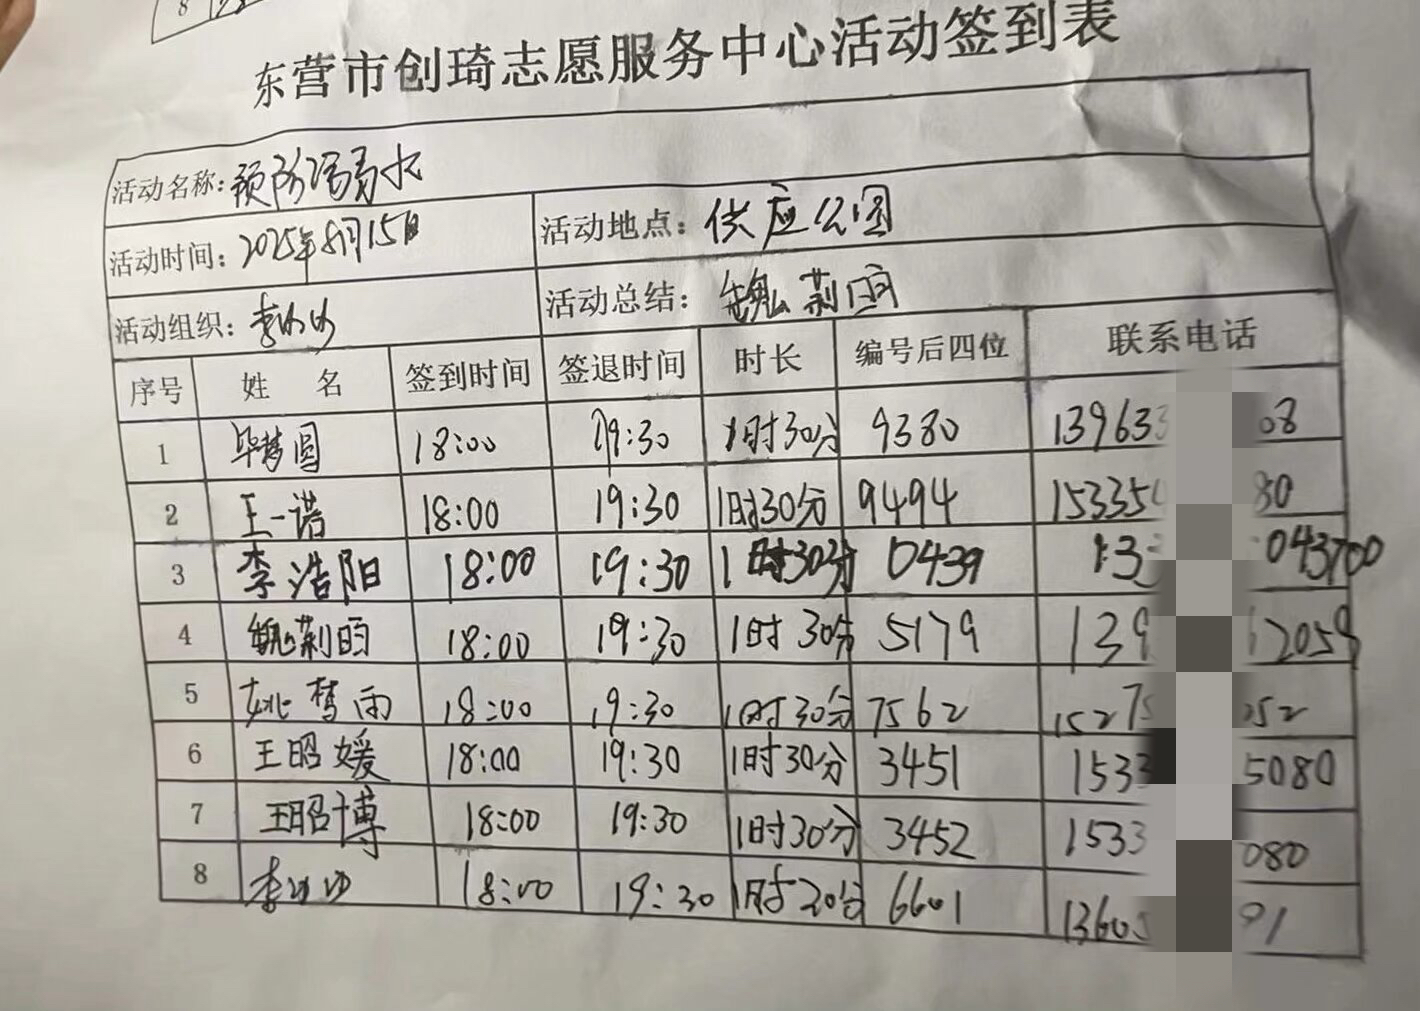 8
东营市创琦志愿服务中心活动签到表
活动名称：预防溺水
活动时间：2025年8月15日 活动地点：供应公园
活动组织：李 活动总结：魏莉雨
序号 姓名 签到时间 签退时间 时长 编号后四位 联系电话
1 毕梦圆 18:00 19:30 1时30分 9380 139633 08
2 王一诺 18:00 19:30 1时30分 9494 15335 80
3 李浩阳 18:00 19:30 1时30分 0439 133 043700
4 魏莉雨 18:00 19:30 1时30分 5179 139 2059
5 姚梦雨 18:00 19:30 1时30分 7562 15275 052
6 王昭媛 18:00 19:30 1时30分 3451 1533 5080
7 王昭博 18:00 19:30 1时30分 3452 1533 080
8 李 18:00 19:30 1时30分 6601 13605 91